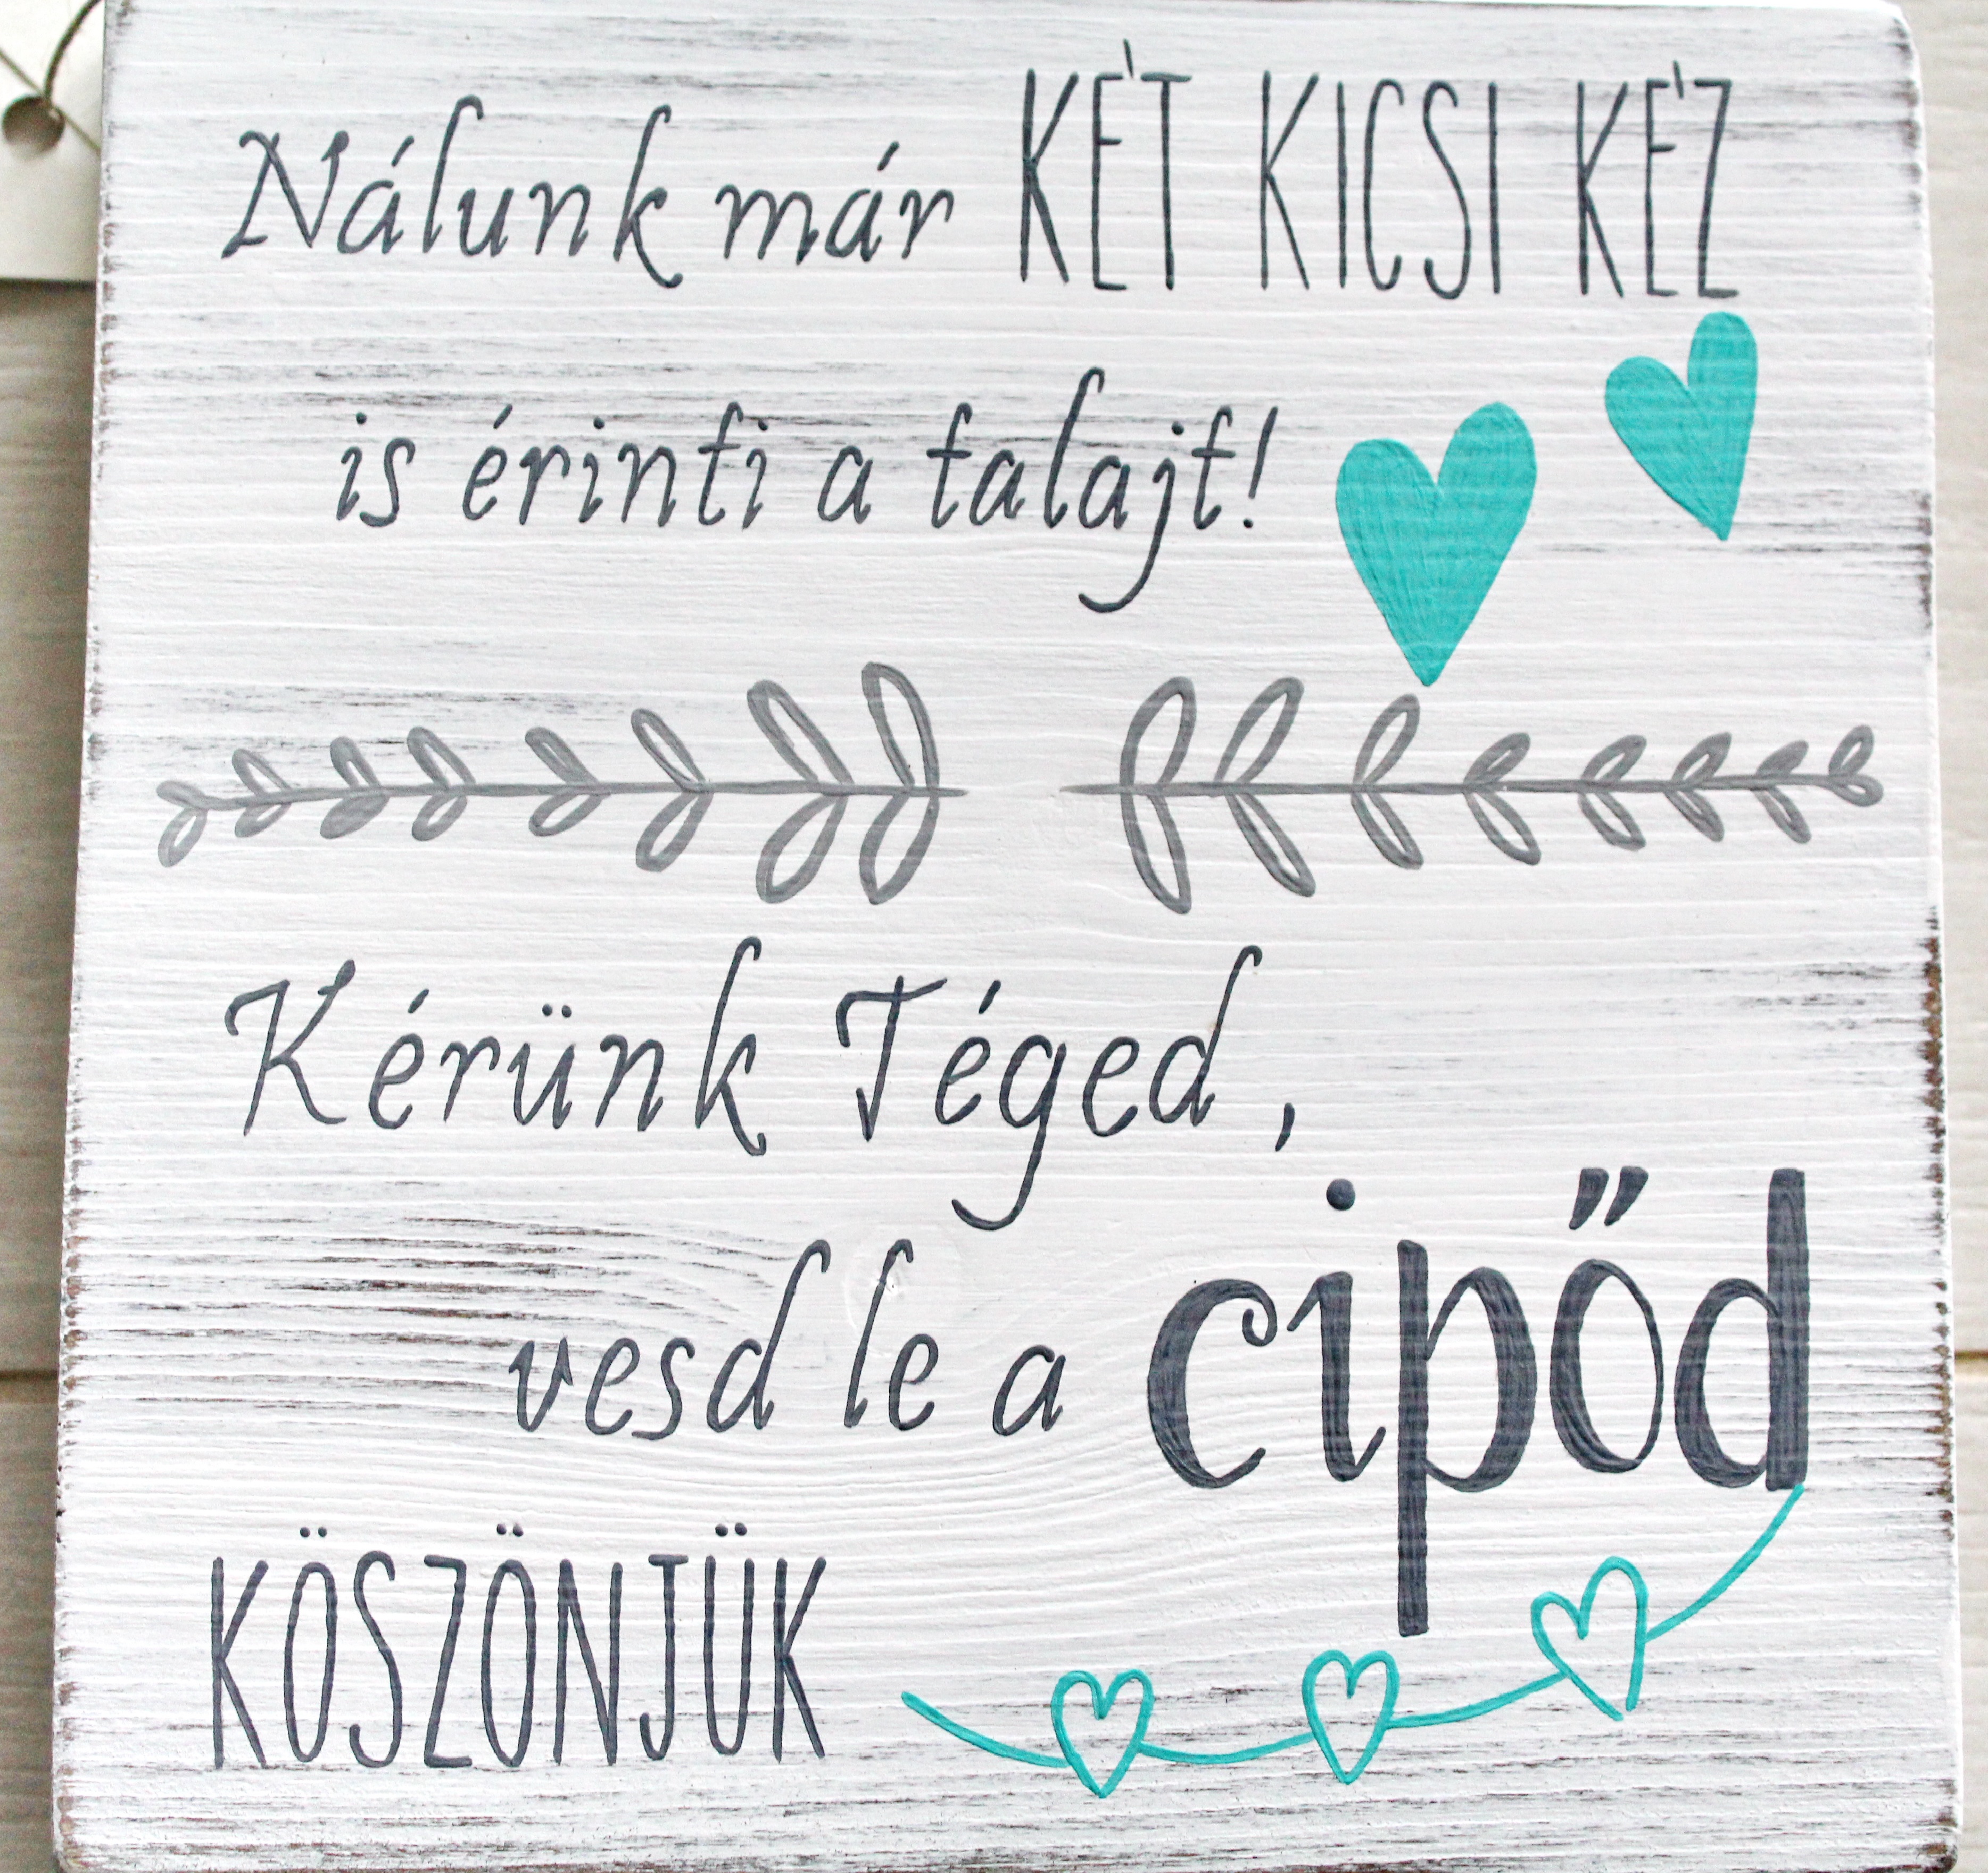 Nálunk már KÉT KICSI KÉZ
is érinti a talajt!
Kérünk Téged,
vesd le a cipőd
KÖSZÖNJÜK